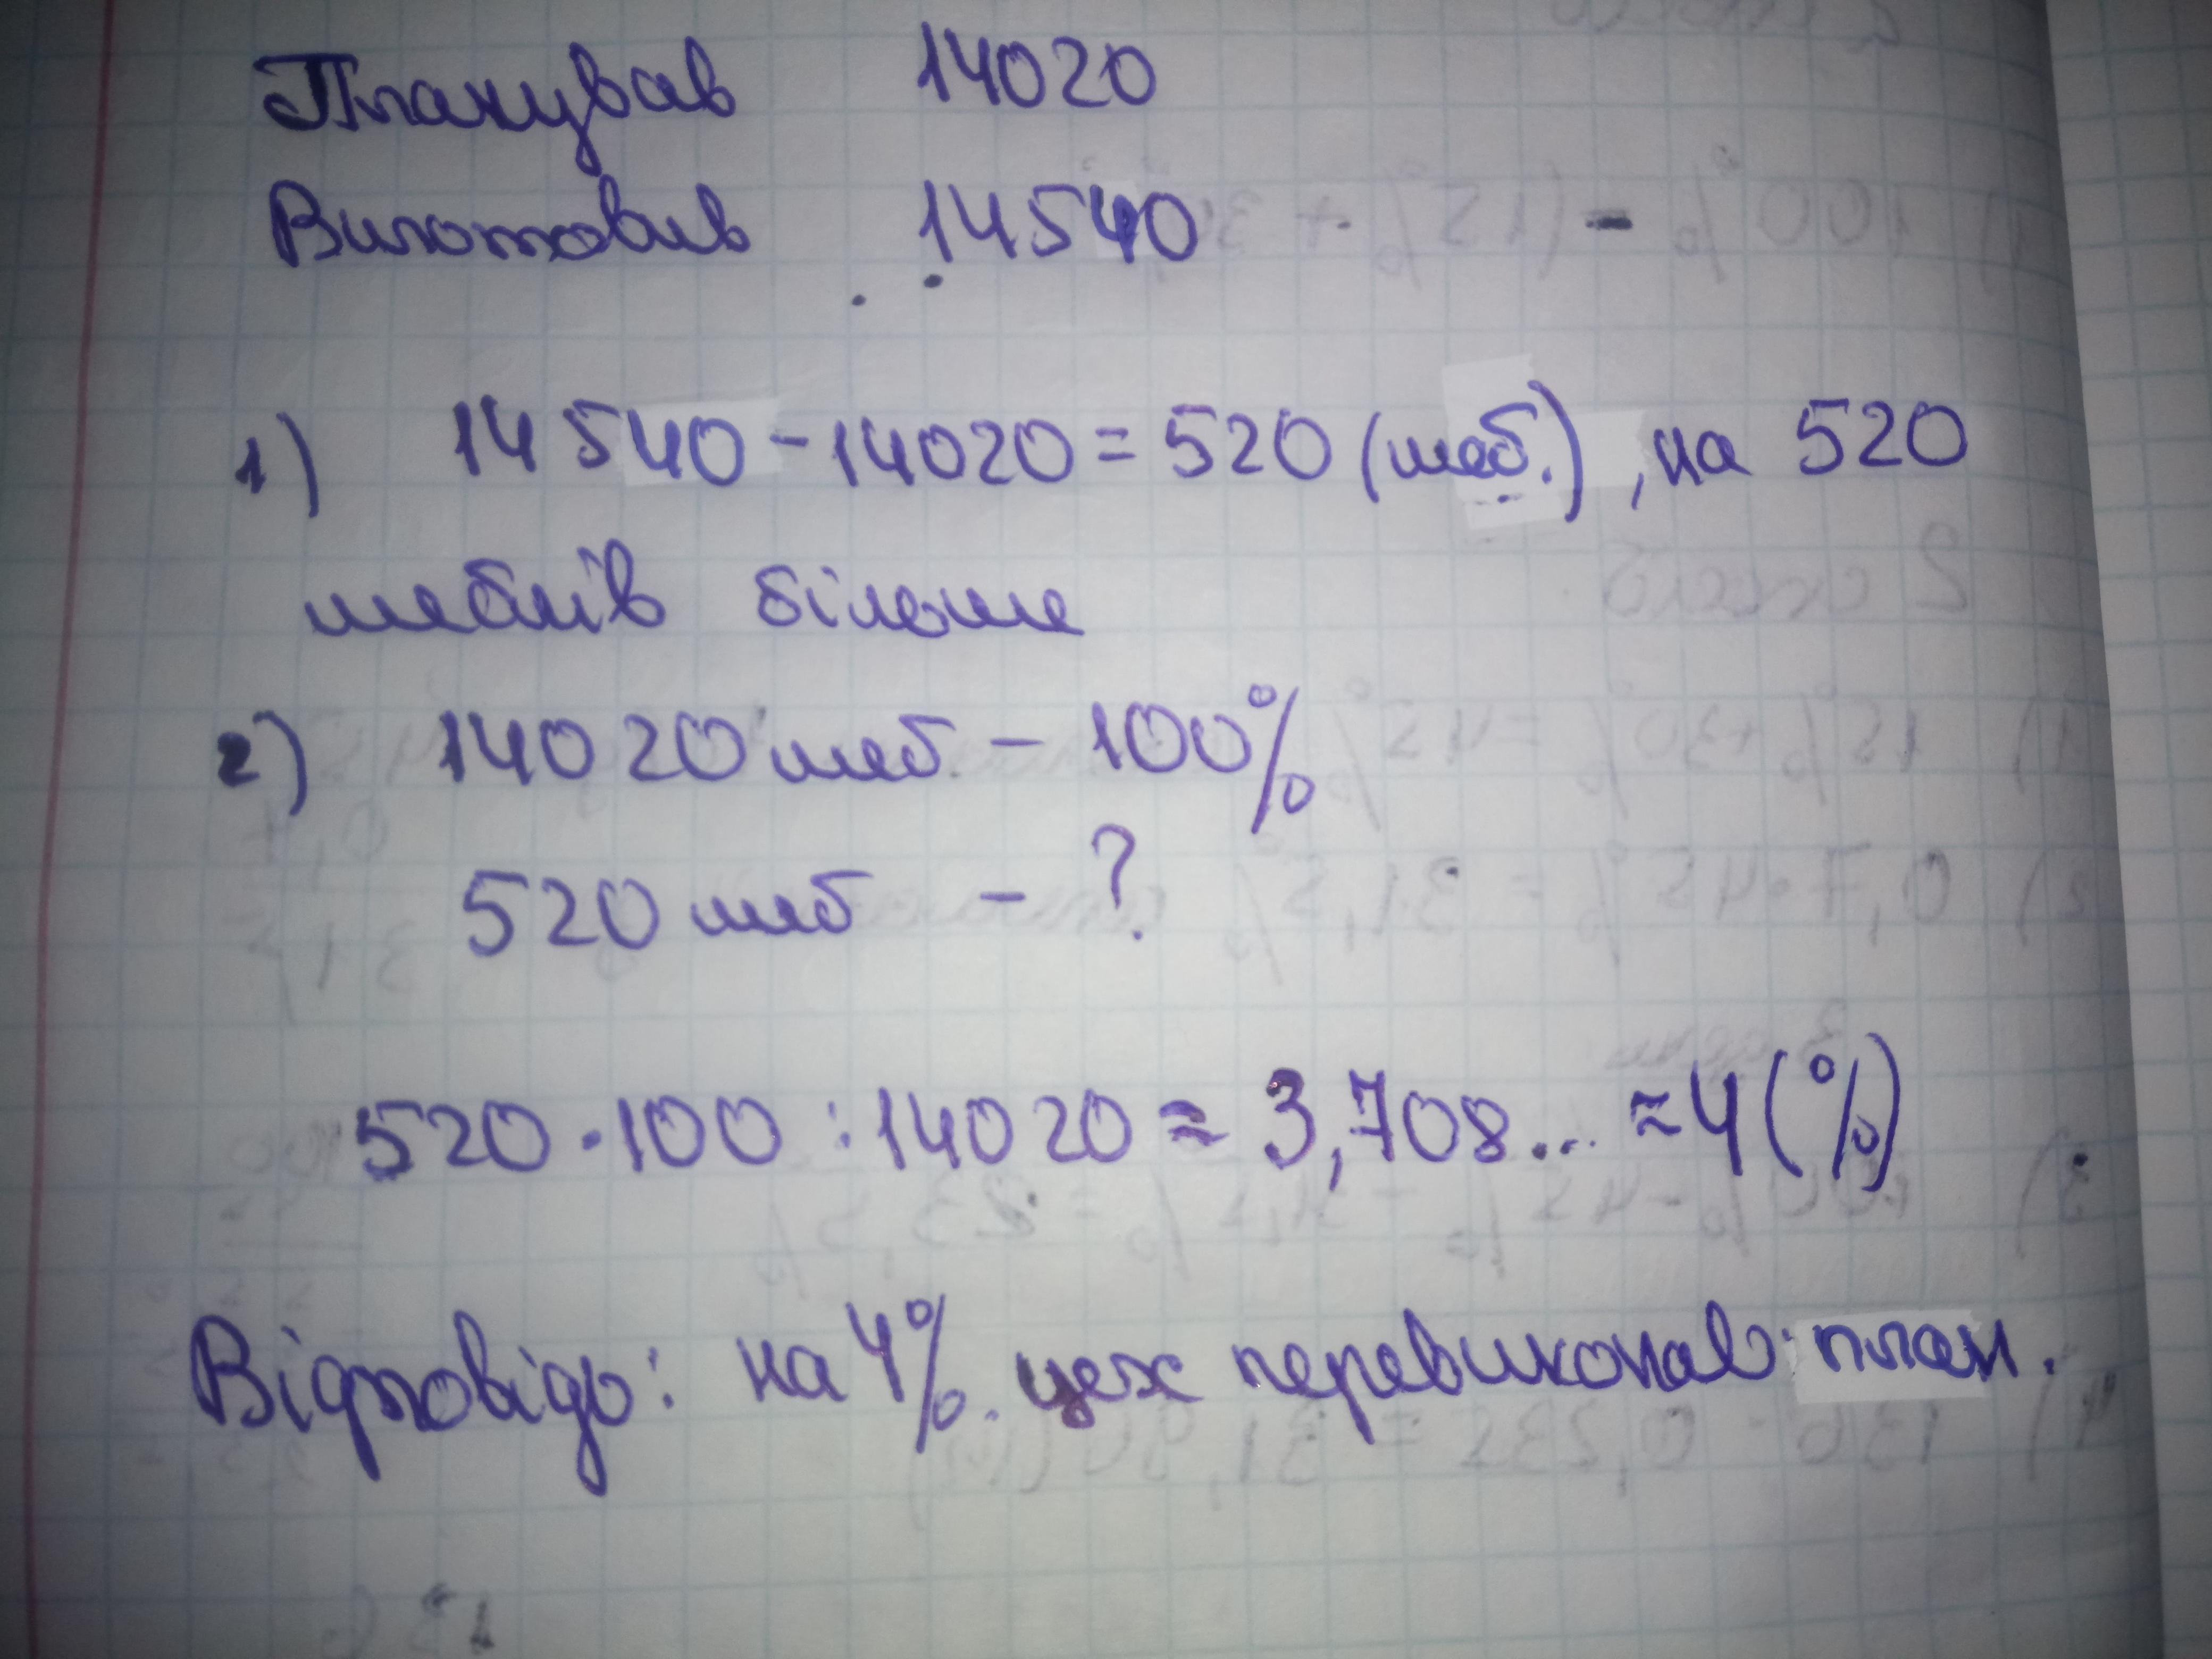 Планував 14020
Виготовив 14540
1) 14540 - 14020 = 520 (меб.), на 520
меблів більше
2) 14020 меб - 100%
520 меб - ?
520 · 100 : 14020 ≈ 3,708... ≈ 4 (%)
Відповідь: на 4% цех перевиконав план.